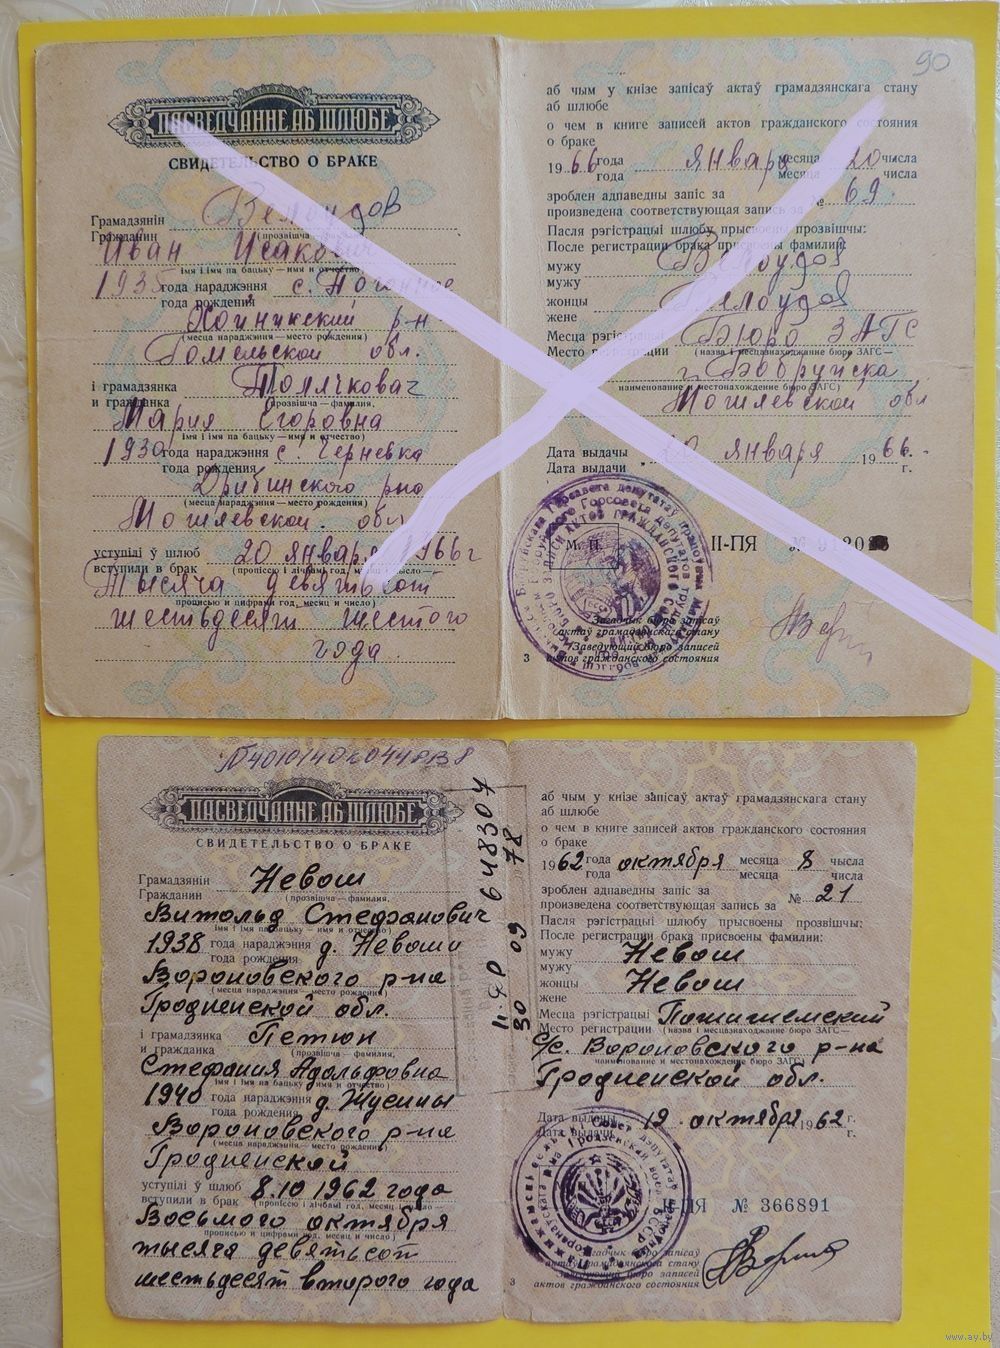 90
ПАСВЕДЧАННЕ АБ ШЛЮБЕ
СВИДЕТЕЛЬСТВО О БРАКЕ
Грамадзянін
Гражданин
Велоудов
(прозвішча — фамилия,
Иван Исакович
імя і імя па бацьку — имя и отчество)
1935 года нараджэння с.
года рождения
Хойникский р-н
(месца нараджэння — место рождения)
Гомельской обл.
і грамадзянка
и гражданка
Толочкович
(прозвішча — фамилия,
Мария Егоровна
імя і імя па бацьку — имя и отчество)
1930 года нараджэння с. Черневка
года рождения
Дрибинского р-на
(месца нараджэння — место рождения)
Могилевской обл.
уступілі ў шлюб
вступили в брак
20 января 1966 г
(пропіссю и лічбамі год, месяц, число —
Тысяча девятьсот
прописью и цифрами год, месяц и число)
шестьдесят шестого
года
аб чым у кнізе запісаў актаў грамадзянскага стану
аб шлюбе
о чем в книге записей актов гражданского состояния
о браке
1966 года января месяца 20 числа
года месяца числа
зроблен адпаведны запіс за
произведена соответствующая запись за № 69.
Пасля рэгістрацыі шлюбу прысвоены прозвішчы:
После регистрации брака присвоены фамилии:
мужу
мужу
Велоудов
жонцы
жене
Велоудов
Месца рэгістрацыі
Место регистрации
Бюро ЗАГС
(назва і месцазнаходжанне бюро ЗАГС—
г. Бобруйска
наименование и местонахождение бюро ЗАГС)
Могилевской обл
Дата выдачы
Дата выдачи
20 января 1966 г.
М. П.
II-ПЯ №
Загадчык бюро запісаў
актаў грамадзянскага стану
Заведующий бюро записей
актов гражданского состояния
3
ПАСВЕДЧАННЕ АБ ШЛЮБЕ
СВИДЕТЕЛЬСТВО О БРАКЕ
Грамадзянін
Гражданин
Невош
(прозвішча — фамилия,
Витольд Стефанович
імя і імя па бацьку — имя и отчество)
1938 года нараджэння д. Невоши
года рождения
Вороновского р-на
(месца нараджэння — место рождения)
Гродненской обл.
і грамадзянка
и гражданка
Петюн
(прозвішча — фамилия,
Стефания Адольфовна
імя і імя па бацьку — имя и отчество)
1940 года нараджэння д. Жусины
года рождения
Вороновского р-на
(месца нараджэння — место рождения)
Гродненской
уступілі ў шлюб
вступили в брак
8.10 1962 года
(пропіссю і лічбамі год, месяц, число —
Восьмого октября
прописью и цифрами год, месяц и число)
тысяча девятьсот
шестьдесят второго года
648307
30 09 78
аб чым у кнізе запісаў актаў грамадзянскага стану
аб шлюбе
о чем в книге записей актов гражданского состояния
о браке
1962 года октября месяца 8 чысла
года месяца числа
зроблен адпаведны запіс за
произведена соответствующая запись за № 21
Пасля рэгістрацыі шлюбу прысвоены прозвішчы:
После регистрации брака присвоены фамилии:
мужу
мужу
Невош
жонцы
жене
Невош
Месца рэгістрацыі
Место регистрации
(назва і месцазнаходжанне бюро ЗАГС—
с/с. Вороновского р-на
наименование и местонахождение бюро ЗАГС)
Гродненской обл.
Дата выдачы
Дата выдачи
12 октября 1962 г.
г.
-ПЯ № 366891
Загадчык бюро запісаў
актаў грамадзянскага стану
Заведующий бюро записей
актов гражданского состояния
3
www.ay.by